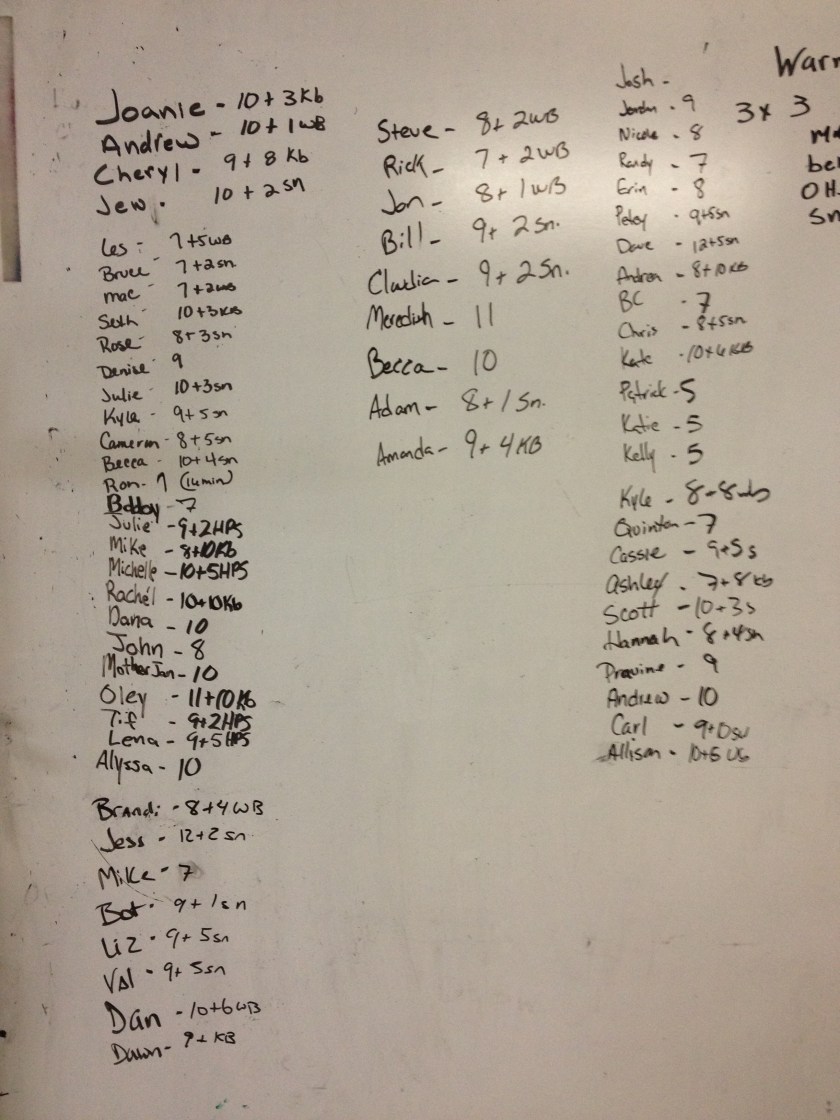 Joanie - 10 + 3 Kb
Andrew - 10 + 1 WB
Cheryl - 9 + 8 Kb
Jew . 10 + 2 sn
Les - 7+5WB
Bruce - 7+2sn
mac - 7+2WB
Seth - 10+3KB
Rose - 8+3sn
Denise - 9
Julie - 10+3sn
Kyle - 9+5sn
Cameron - 8+5sn
Becca - 10+4sn
Ron - 7 (14min)
Bobby - 7
Julie - 9+2HPS
Mike - 8+10Kb
Michelle - 10+5HPS
Rachel - 10+10Kb
Dana - 10
John - 8
Mother Jan - 10
Oley - 11+10Kb
Tif - 9+2HPS
Lena - 9+5HPS
Alyssa - 10
Brandi - 8+4WB
Jess - 12+2sn
Mike - 7
Bot - 9+1sn
Liz - 9+5sn
Val - 9+5sn
Dan - 10+6WB
Dawn - 9+ KB
Steve - 8+ 2WB
Rick - 7 + 2WB
Jon - 8+ 1WB
Bill - 9+ 2sn.
Claudia - 9+ 2Sn.
Meredith - 11
Becca - 10
Adam - 8+1Sn.
Amanda - 9+ 4KB
Josh -
Jordan - 9
Nicole - 8
Randy - 7
Erin - 8
Petey - 9+5sn
Dave - 12+5sn
Andrea - 8+10KB
BC - 7
Chris - 8+5sn
Kate - 10+6KB
Patrick - 5
Katie - 5
Kelly - 5
Kyle - 8-8wb
Quinton - 7
Cassie - 9+5s
Ashley - 7+8kb
Scott - 10+3s
Hannah - 8+4sn
Pravine - 9
Andrew - 10
Carl - 9+0sn
Allison - 10+5
Warr
3 x 3
be
OH.
Sn